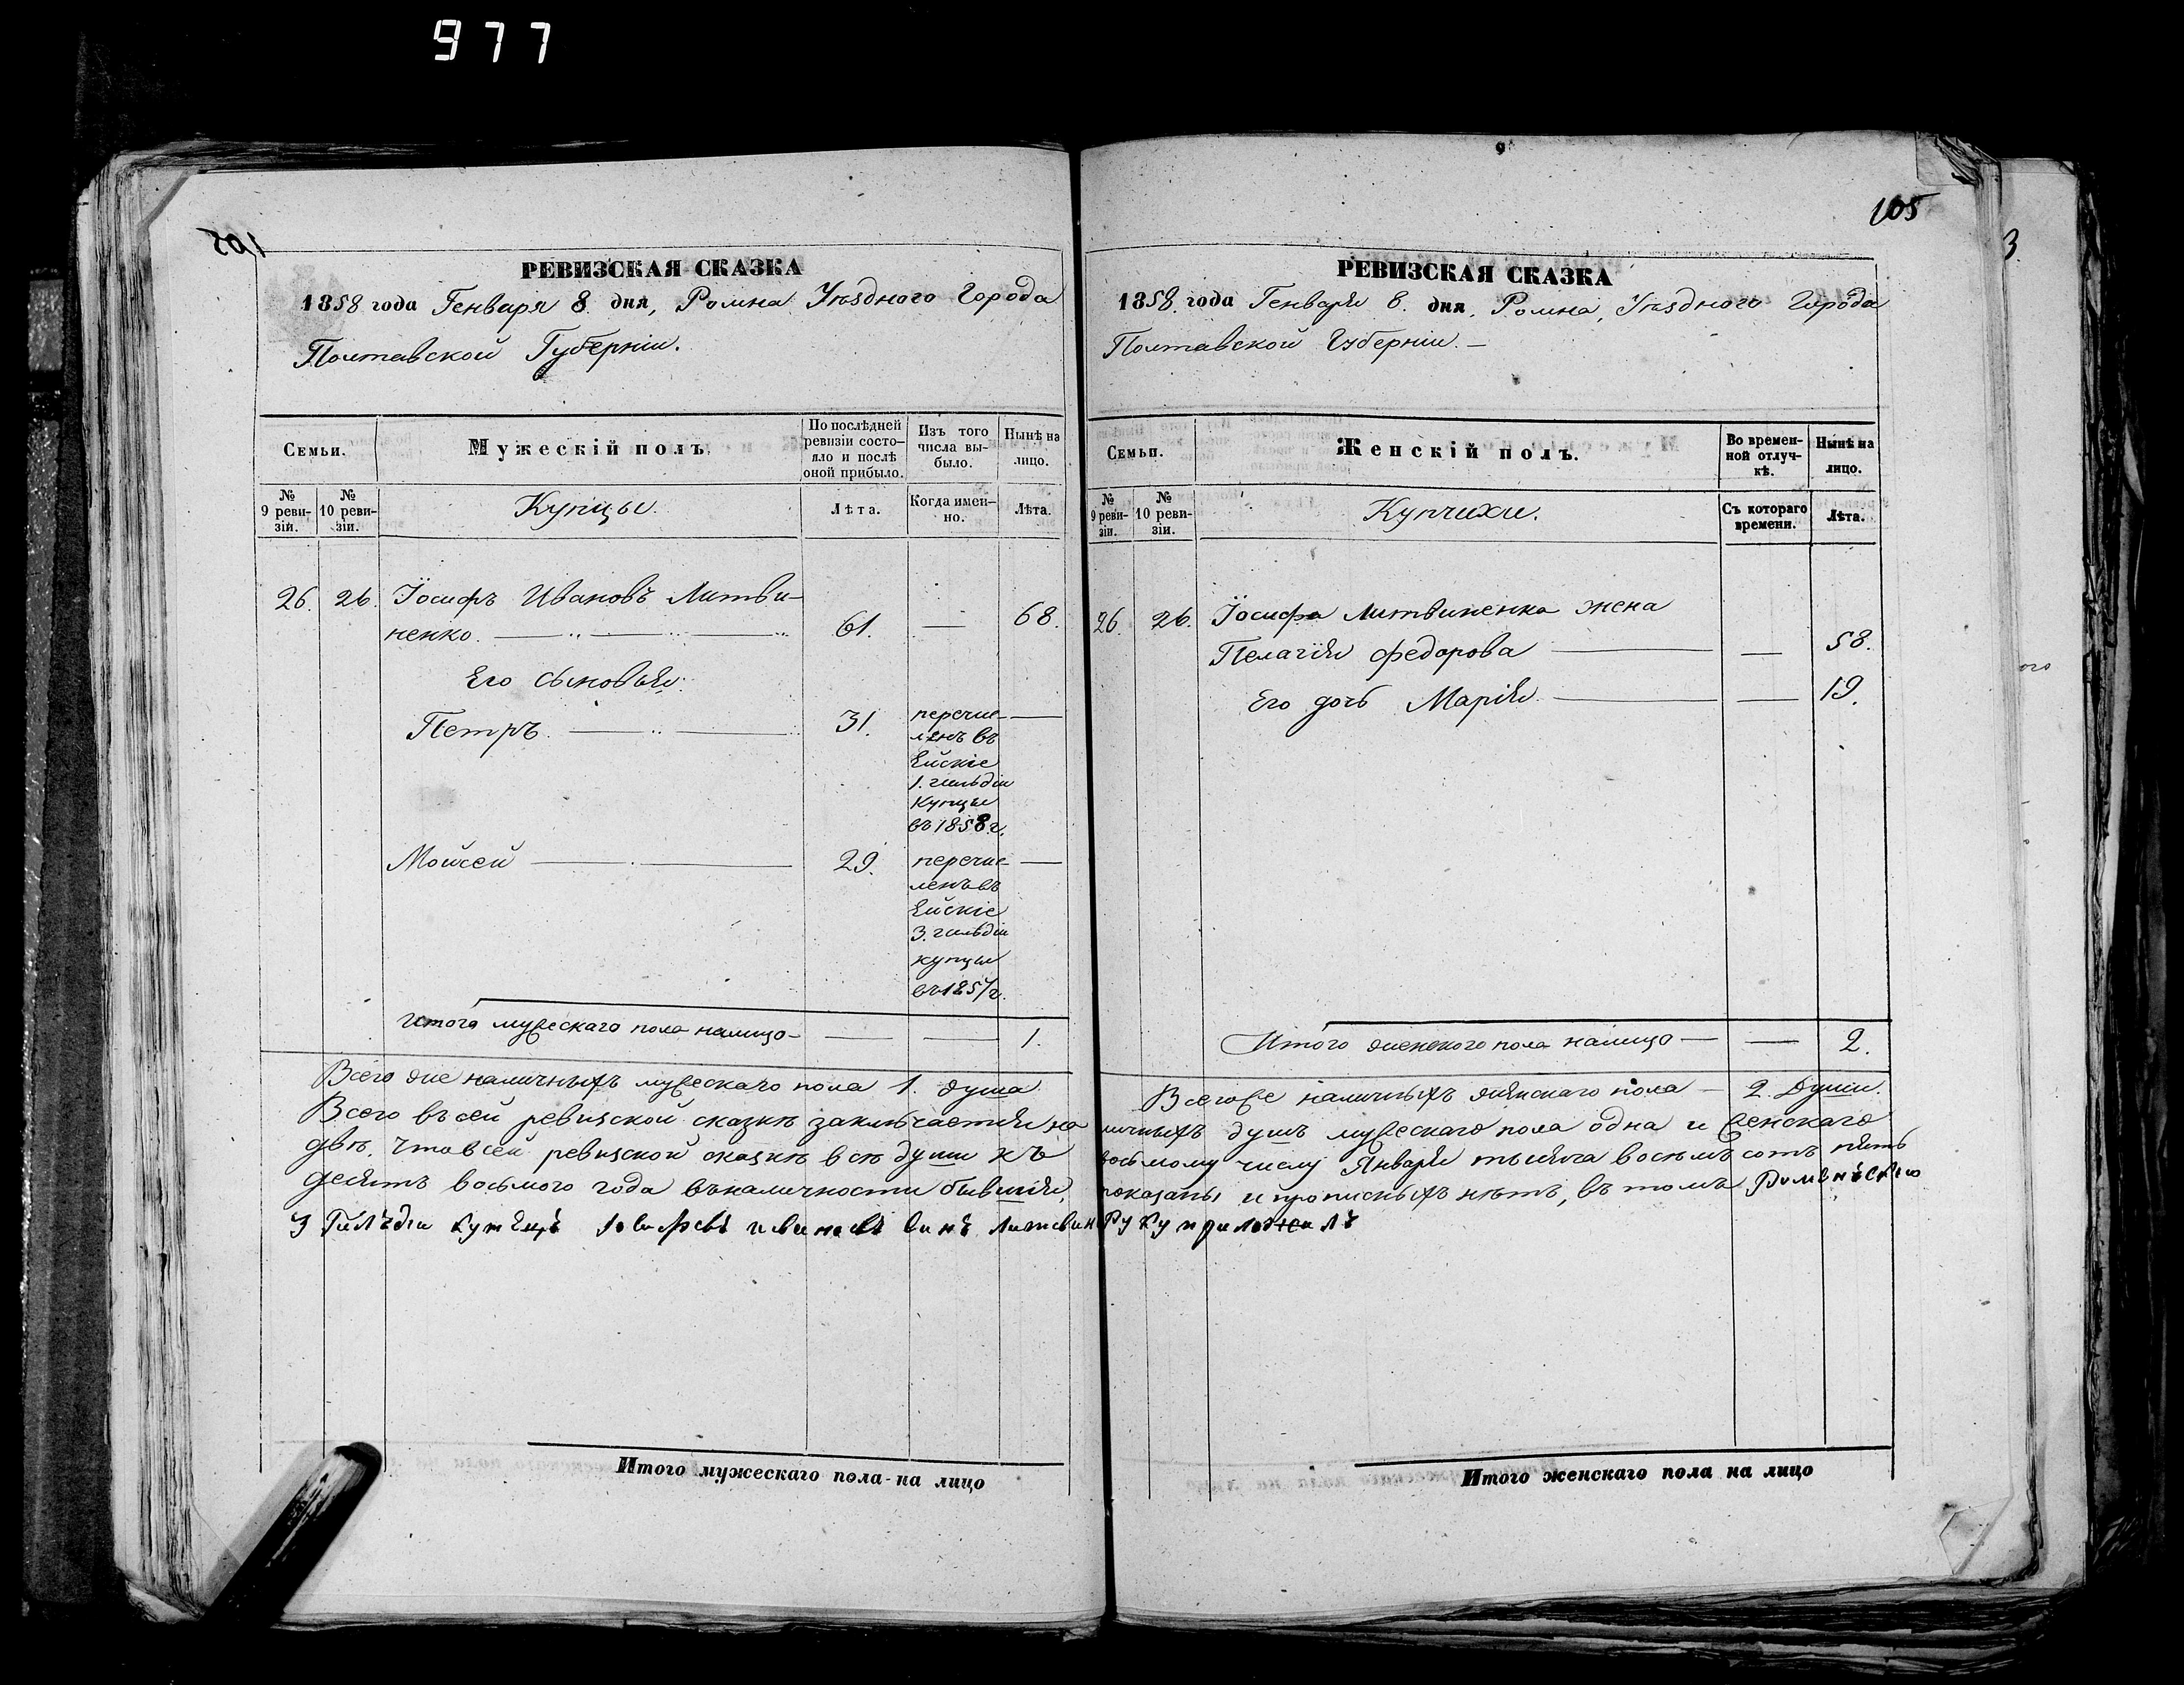 977
105
РЕВИЗСКАЯ СКАЗКА
1858 года Генваря 8. дня, Ромна Уѣзднаго Города
Полтавской Губерніи.
Семьи.
Мужескій полъ.
По послѣдней ревизіи состояло и послѣ оной прибыло.
Изъ того числа выбыло.
Нынѣ на лицо.
№ 9 ревизіи.
№ 10 ревизіи.
Купцы.
Лѣта.
Когда именно.
Лѣта.
26. 26. Іосифъ Ивановъ Литви-
ненко. 61. — 68.
Его сыновья:
Петръ. 31. перечис-
ленъ въ
Ейскіе
1. гильдіи
купцы
въ 1858 г.
Мойсей 29. перечис-
ленъ въ
Ейскіе
3. гильдіи
купцы
въ 1857 г.
Итого мужескаго пола налицо — — 1.
Всего же наличныхъ мужескаго пола 1. душа
105
3
РЕВИЗСКАЯ СКАЗКА
1858. года Генваря 8. дня, Ромна, Уѣзднаго Города
Полтавской Губерніи. —
Семьи.
Женскій полъ.
Во временной отлучкѣ.
Нынѣ на лицо.
№ 9 ревизіи.
№ 10 ревизіи.
Купчихи.
Съ котораго времени.
Лѣта.
26. 26. Іосифа Литвиненка жена
Пелагія Федорова — — 58.
Его дочь Марія — — 19.
Итого женскаго пола налицо — — 2.
Всего же наличныхъ женскаго пола — 2. Души.
Всего въ сей ревизской сказкѣ заключается на личныхъ душъ мужескаго пола одна и женскаго
двѣ. Что въ сей ревизской сказкѣ всѣ души къ восьмому числу Января тысяча восемьсотъ пять
десятъ восьмого года въ наличности бывшія, показаны и прописныхъ нѣтъ, въ томъ Роменъскію
3 Гилъдіи купецъ Литвин Руку приложилъ
Итого мужескаго пола на лицо
Итого женскаго пола на лицо